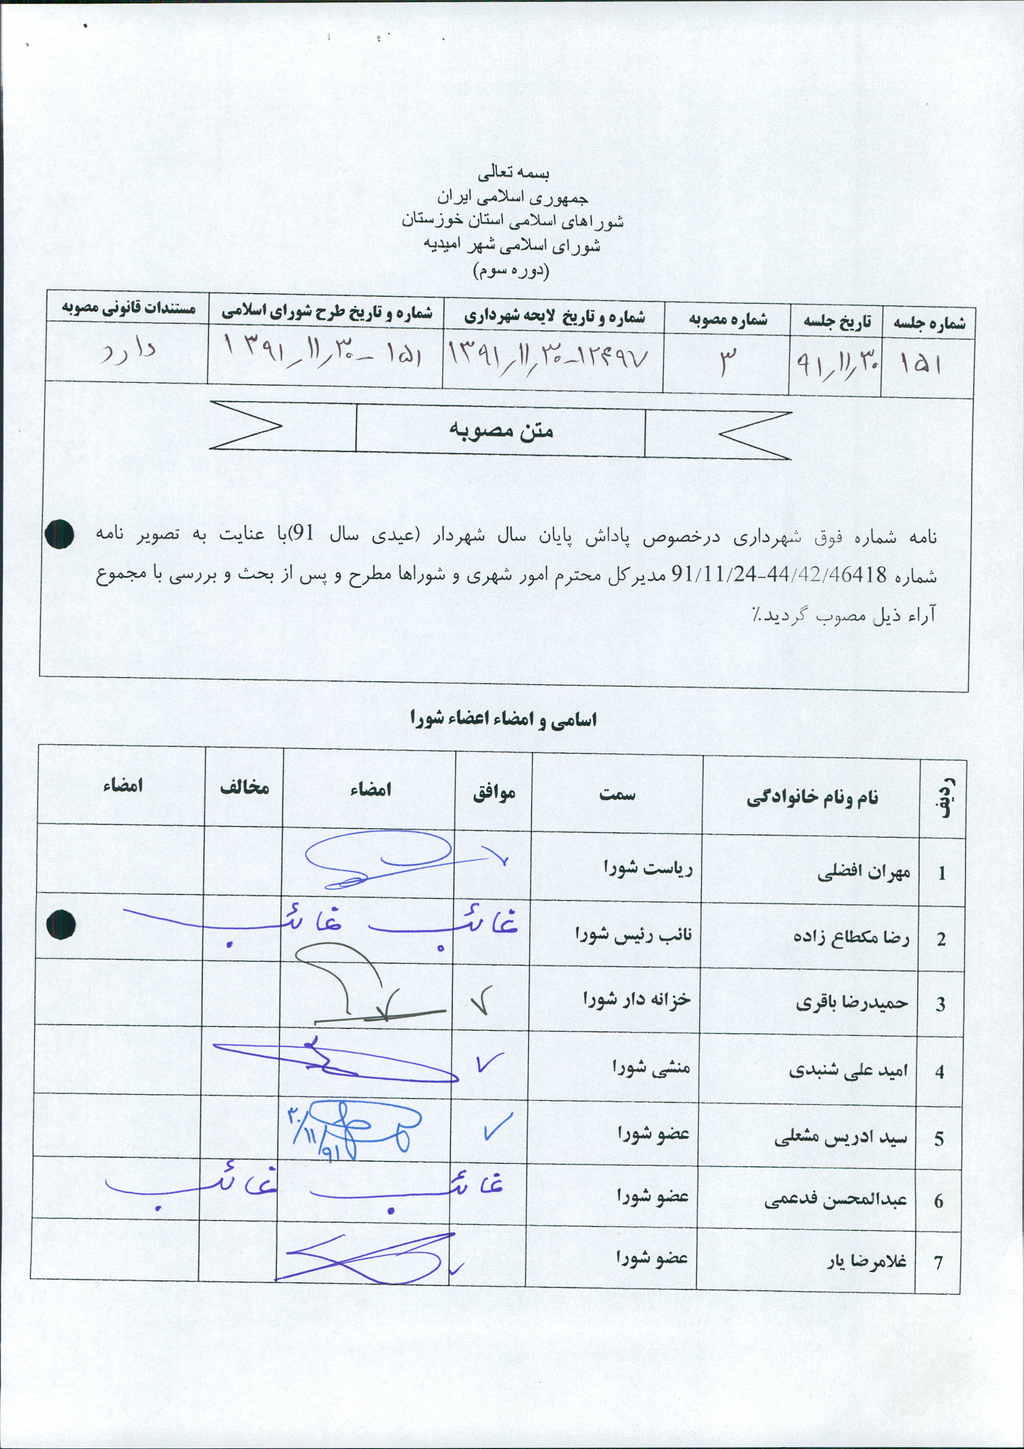 بسمه تعالی
جمهوری اسلامی ایران
شوراهای اسلامی استان خوزستان
شورای اسلامی شهر امیدیه
(دوره سوم)
شماره جلسه تاریخ جلسه شماره مصوبه شماره و تاریخ لایحه شهرداری شماره و تاریخ طرح شورای اسلامی مستندات قانونی مصوبه
۱۵۱ ۹۱٫۱۱٫۳۰ ۳ ۱۲۴۹۷-۱۳۹۱٫۱۱٫۳۰ ۱۵۱-۱۳۹۱٫۱۱٫۳۰ دارد
متن مصوبه
نامه شماره فوق شهرداری درخصوص پاداش پایان سال شهردار (عیدی سال 91)با عنایت به تصویر نامه
شماره 44/42/46418-91/11/24 مدیرکل محترم امور شهری و شوراها مطرح و پس از بحث و بررسی با مجموع
آراء ذیل مصوب گردید.٪
اسامی و امضاء اعضاء شورا
ردیف نام ونام خانوادگی سمت موافق امضاء مخالف امضاء
1 مهران افضلی ریاست شورا
2 رضا مکطاع زاده نائب رئیس شورا غائب غائب
3 حمیدرضا باقری خزانه دار شورا
4 امید علی شنبدی منشی شورا
5 سید ادریس مشعلی عضو شورا ۳۰/۱۱/۹۱
6 عبدالمحسن فدعمی عضو شورا غائب غائب
7 غلامرضا یار عضو شورا